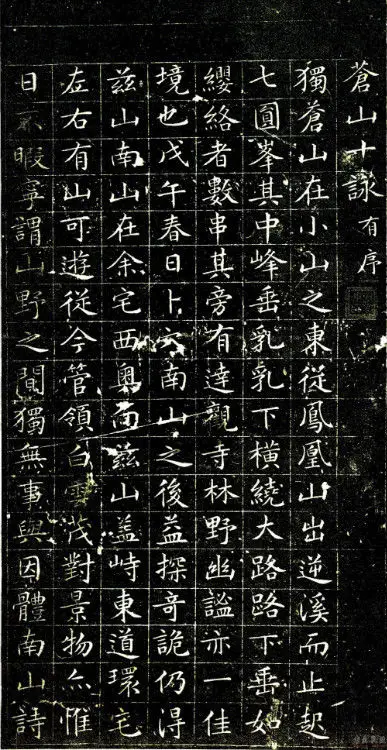 蒼山十詠 有序
獨蒼山在小山之東從鳳凰山出逆溪而止起
七圓峯其中峰垂乳乳下橫繞大路路下垂如
纓絡者數串其旁有達觀寺林野幽謐亦一佳
境也戊午春日卜穴南山之後益探奇詭仍淂
茲山南山在余宅西奧而茲山盖峙東道環宅
左右有山可遊從今管領白雲茂對景物亦惟
日不暇寧謂山野之間獨無事與因體南山詩